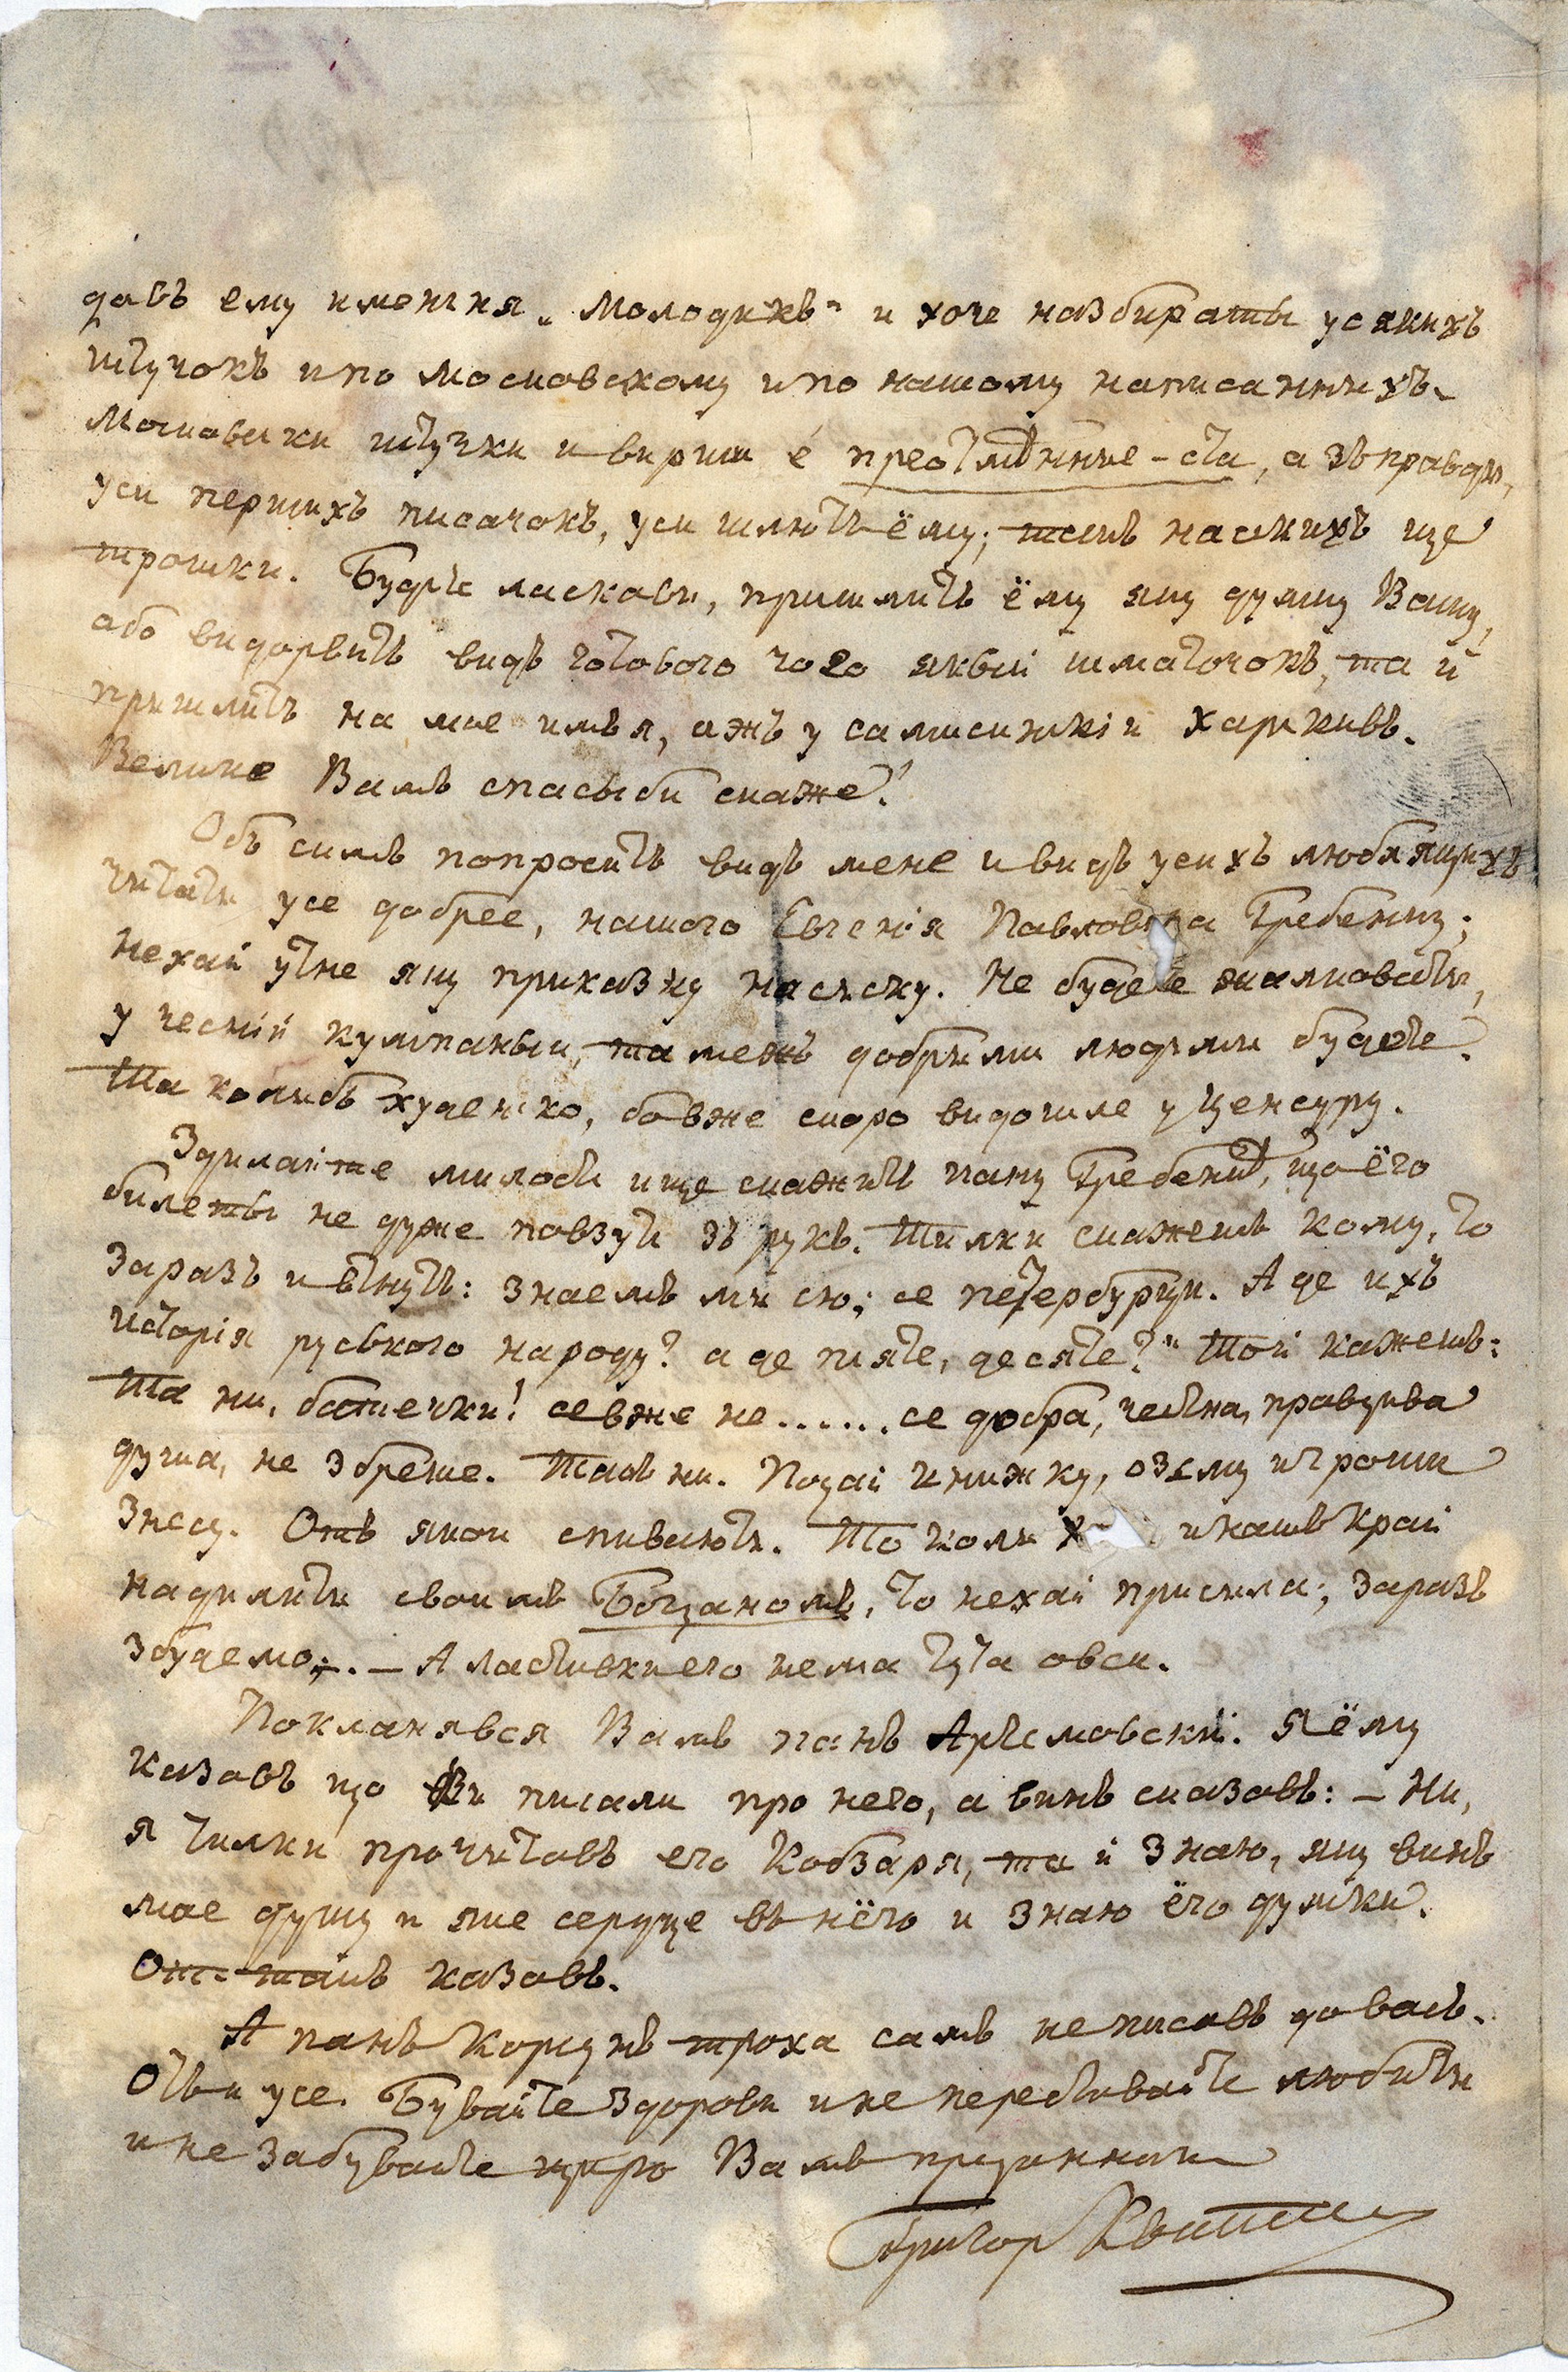 давъ ему имення „Молодикъ" и хоче назбираты усякихъ
штучокъ и по московскому и по нашому написаннихъ.
Московски штучки и вирши е преотмѣнние-ста, а зъ правди,
уси першихъ писачокъ, уси шлють ёму; такъ насмихъ ще
трошки. Будьте ласкави, пришлить ёму яку думку Вашу,
або видорвить видъ готового чого якый шматочокъ, та й
пришлить на мое имья, ажъ у самисинький Харькивъ.
Велике Вамъ спасыби скаже!
Объ симъ попросить видъ мене и видъ усихъ любящихъ
читати усе добрее, нашого Евгенія Павловича Гребенку;
нехай утне яку приказку наську. Не буде жалковати,
у чесній кумпаныи, та межъ добрими людьми буде.
Та колибъ хуценько, бо вже скоро видошле у Ценсуру.
Здилайте милость и ще скажить пану Гребенцѣ, що ёго
билеты не дуже повзуть зъ рукъ. Тилки скажешъ кому, то
заразъ и втнуть: знаемъ ми сю; се петербурци. А де ихъ
исторія руського народу? а де пяте, десяте?" Той кажешъ:
Та ни, батечки! се вже не...... се добра, чесна, правдива
душа, не збреше. Такъ ни. Подай книжку, озьму и гроши
знесу. Отъ якои спивають. То коли и нашъ край
надилити своимъ Богданомъ, то нехай присила; заразъ
збудемо. — А ластивки его нема тута овси.
Покланявся Вамъ панъ Артемовский. Я ёму
казавъ що Ви писали про него, а винъ сказавъ: — Ни,
я тилки прочитавъ его Кобзаря, та й знаю, яку винъ
мае душу и яке серце въ нёго и знаю ёго думки.
Отъ такъ казавъ.
А панъ Корсунъ троха самъ не писавъ до васъ.
Отъ и усе. Бувайте здорови и не переставайте любити
и не забувайте щиро Вамъ преданного
Григор Квитка